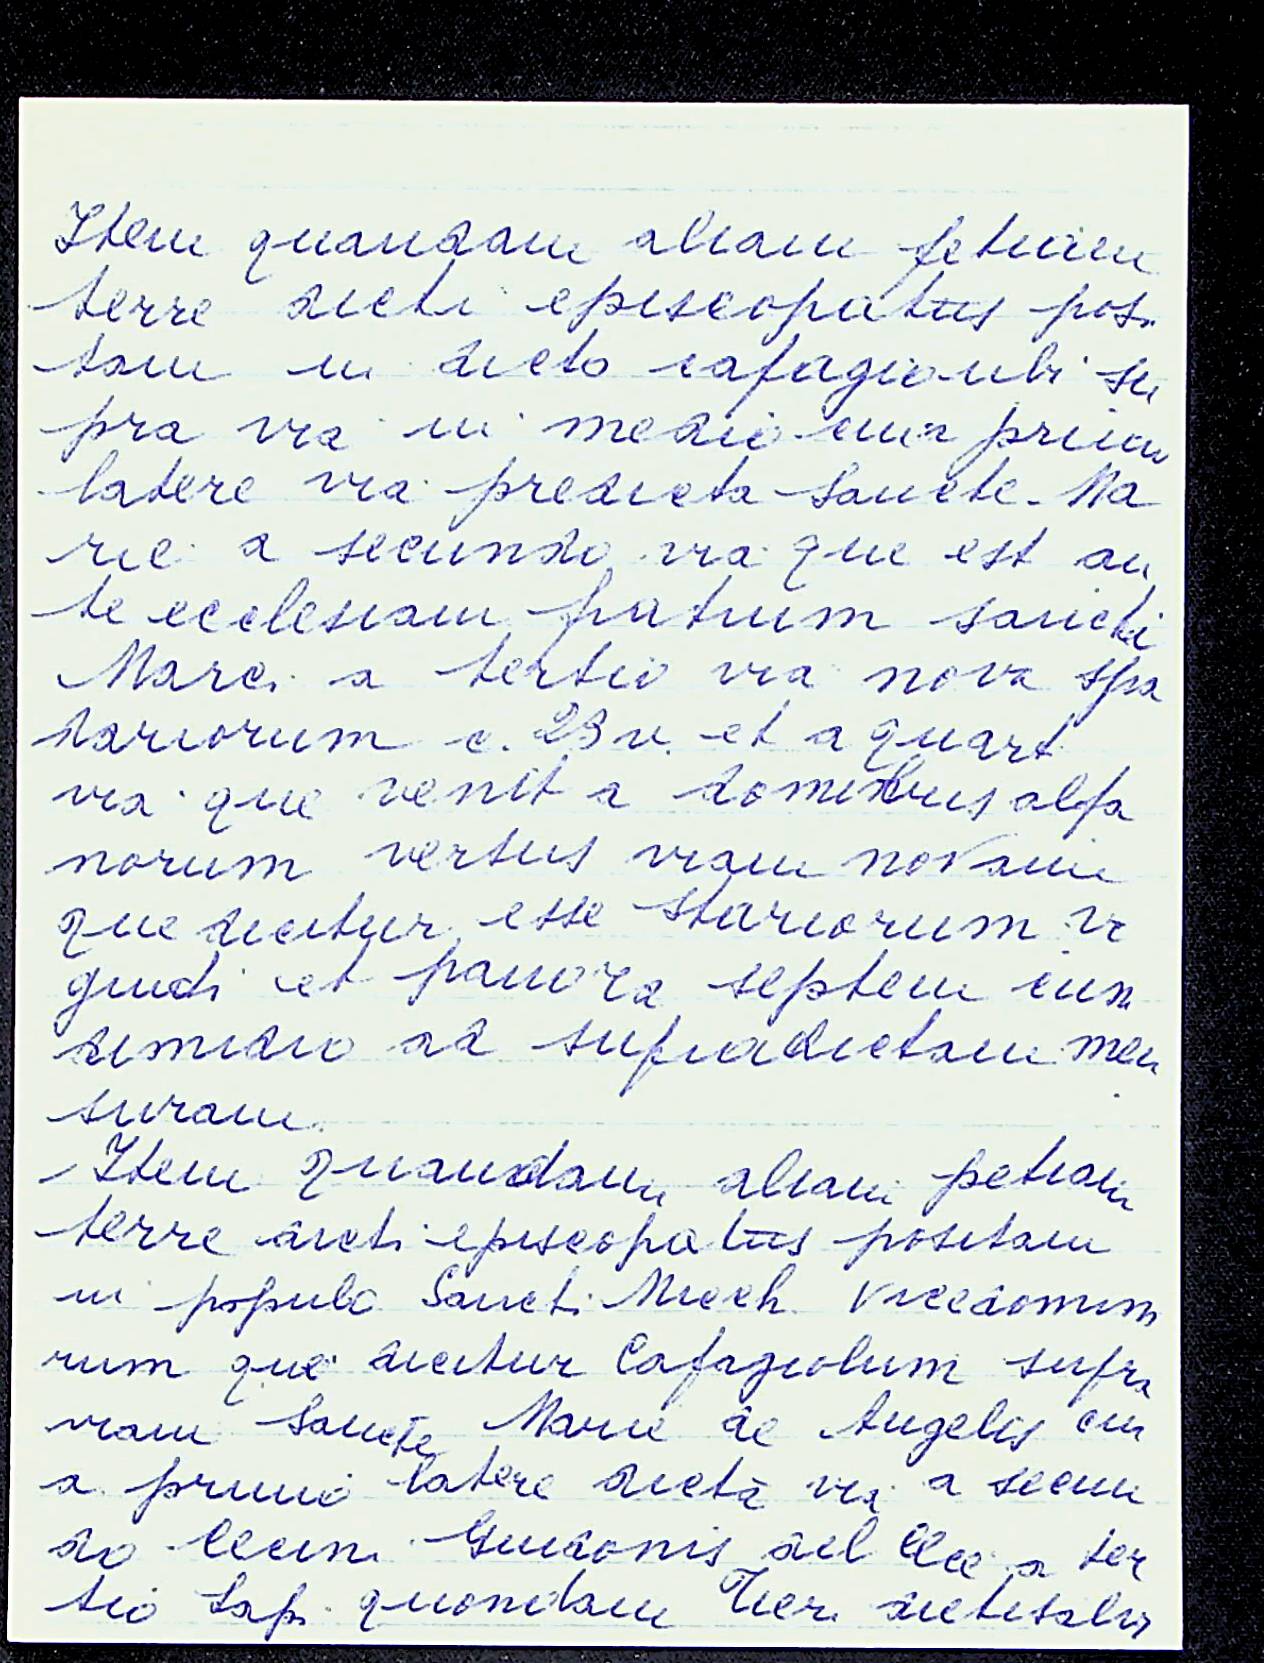 Item quandam aliam petiam
terre dicti episcopatus posi
tam in dicto cafagio ubi su
pra via in medio cui a primo
latere via predicta Sancte Ma
rie a secundo via que est an
te ecclesiam fratrum sancti
Marci a tertio via nova spa
dariorum c. 23 v. et a quart
via que venit a domibus alfa
norum versus viam novam
que dicitur esse stariorum vi
ginti et panora septem cum
dimidio ad supradictam men
suram.
Item quandam aliam petiam
terre dicti episcopatus positam
in populo Sancti Mich. Vicedomino
rum que dicitur Cafagiolum supra
viam Sancte Marie de Angelis cui
a primo latere dicta via a secun
do Guidonis del a ter
tio Lap. quondam dietisalvi